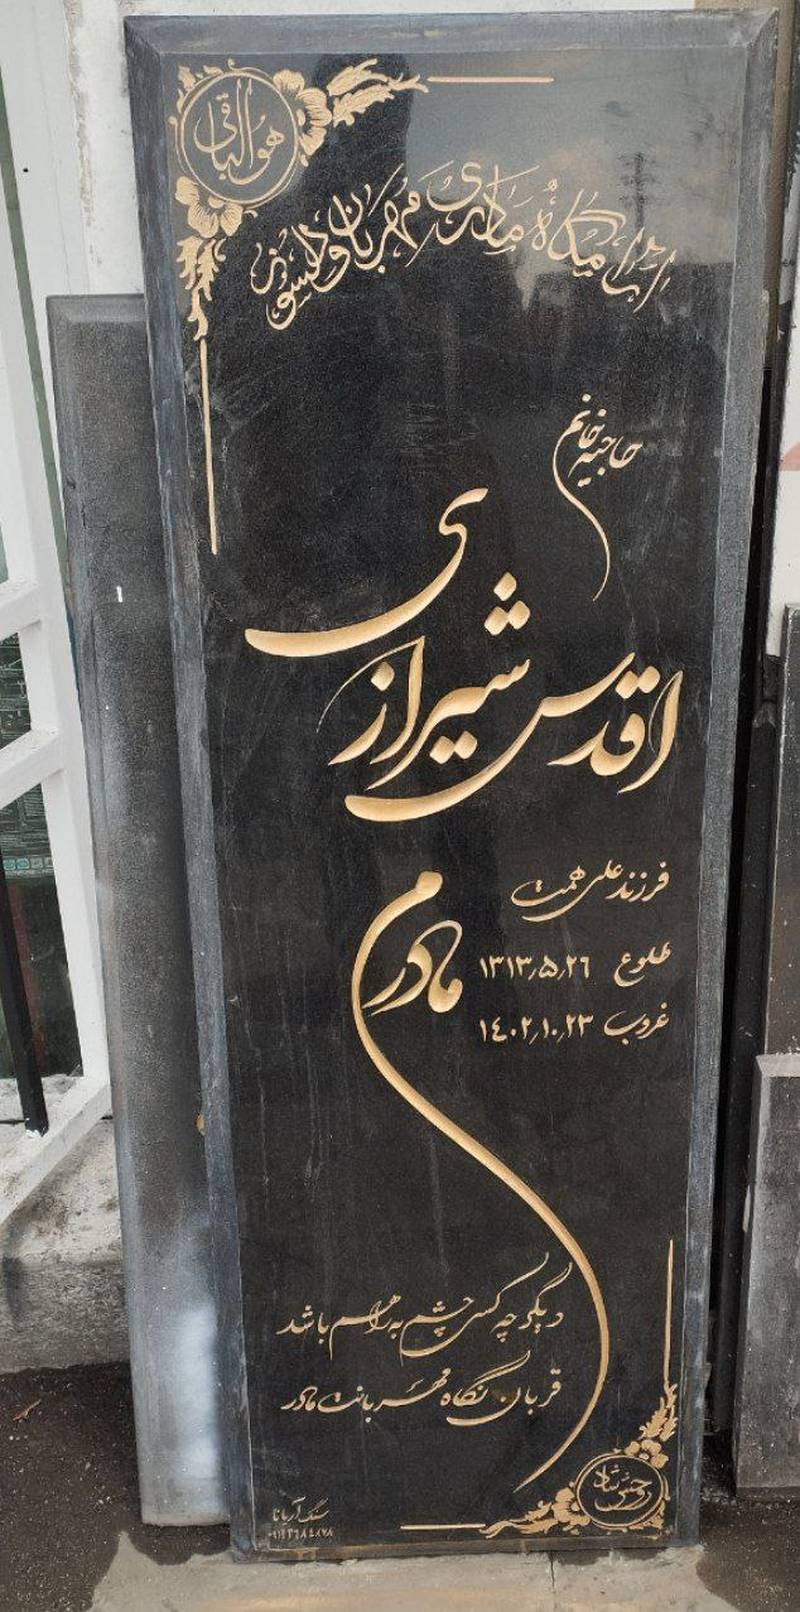 هو الباقی
آرامگاه مادری مهربان و دلسوز
حاجیه خانم
اقدس شیرازی
فرزند علی همت
طلوع ۱۳۱۳٫۵٫۲۶
غروب ۱۴۰۲٫۱۰٫۲۳
مادرم
دیگر چه کسی چشم به راهم باشد
قربان نگاه مهربانت مادر
روحش شاد
سنگ آریانا